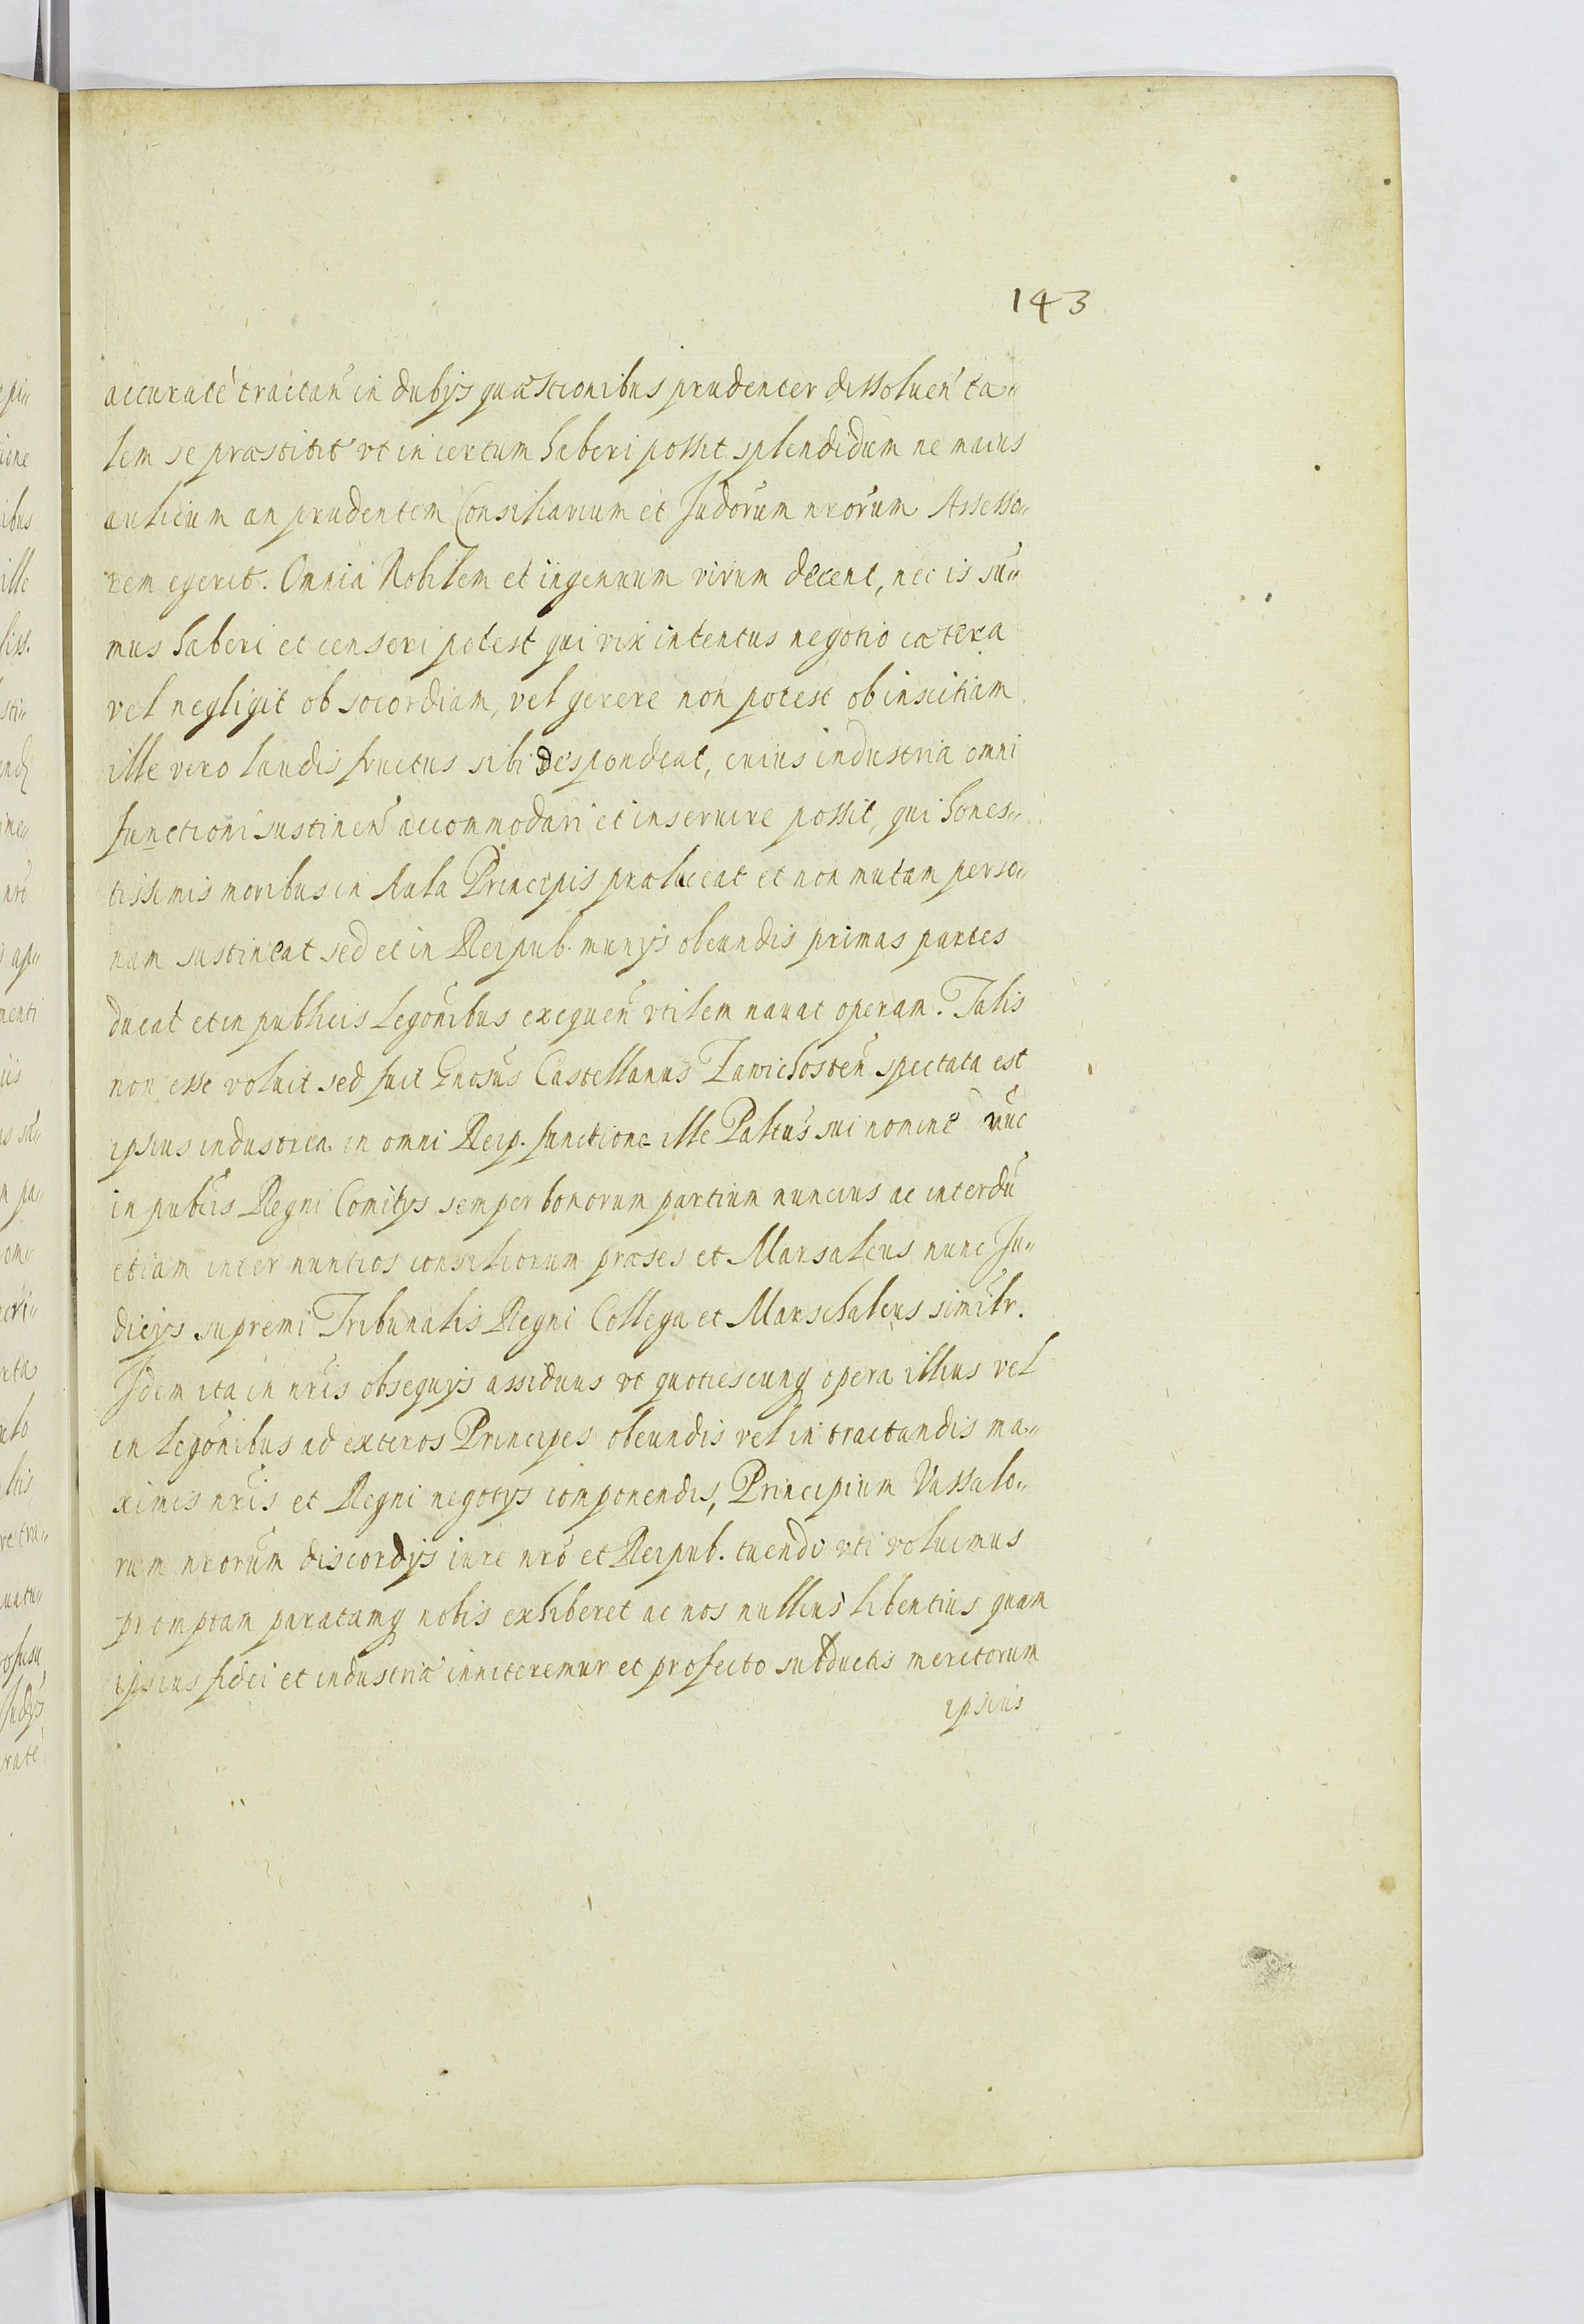 143
accuratè tractan̄ in dubÿs quæstionibus prudenter dissoluen̄ ta„
lem se præstitit vt incertum haberi possit splendidum ne maius
aulicum an prudentem Consiliarium et Judorūm nrorūm Assesso„
rem egerit. Omnia Nobilem et ingenuum virum decent, nec is su„
mus haberi et censeri potest qui vix intentus negotio cætera
vel negligit ob socordiam, vel gerere non potest ob inscitiam
ille vero laudis fructus sibi despondeat, cuius industria omni
functioni sustinen̄ accommodari et inseruire possit, qui hones„
tissimis moribus in Aula Principis præluceat et non mutam perso„
nam sustineat sed et in Reipub. munÿs obeundis primas partes
ducat et in publicis Legōnibus exequen̄ vtilem nauat operam. Talis
non esse voluit sed fuit Gnosūs Castellanus Zawichosten̄ spectata est
ipsius industria in omni Reip. functione ille Paltūs sui nomine nūc
in pubcis Regni Comitÿs semper bonorum partium nuncius ac interdū
etiam inter nuntios consiliorum præses et Marsalcus nunc Ju„
dicÿs supremi Tribunalis Regni Collega et Marschalcus similr.
Jdem ita in nris obsequÿs assiduus vt quotiescunq opera illius vel
in legōnibus ad exteros Principes obeundis vel in tractandis ma„
ximis nris et Regni negotÿs componendis, Principium Vassalo„
rum nrorūm discordÿs iure nrō et Reipub. tuendo vti voluimus
promptam paratamq nobis exhiberet ac nos nullius libentius quam
ipsius fidei et industriæ inniteremur et profecto subductis meritorum
ipsius